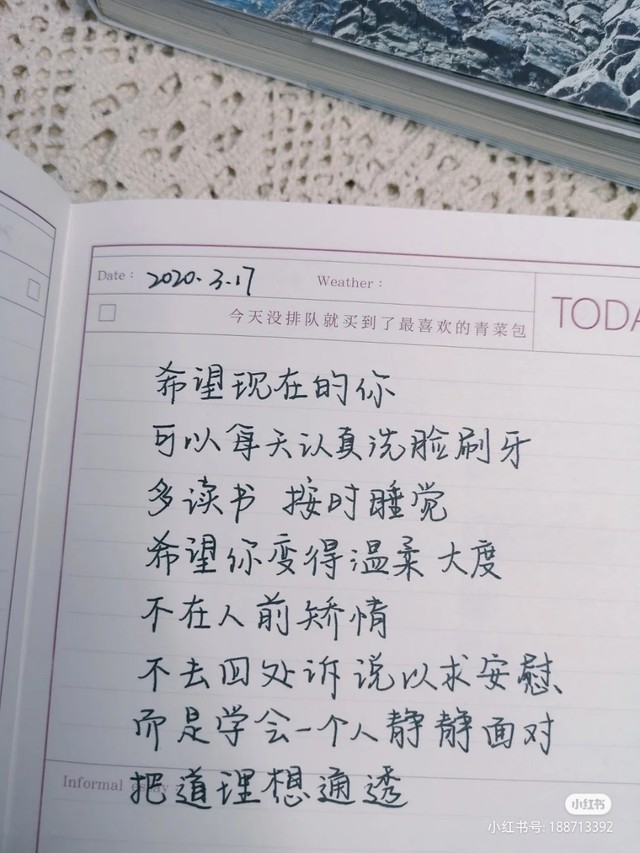 Date： 2020.3.17 Weather：
TODA
今天没排队就买到了最喜欢的青菜包
希望现在的你
可以每天认真洗脸刷牙
多读书 按时睡觉
希望你变得温柔 大度
不在人前矫情
不去四处诉说以求安慰、
而是学会一个人静静面对
Informal
把道理想通透
小红书
小红书号: 188713392